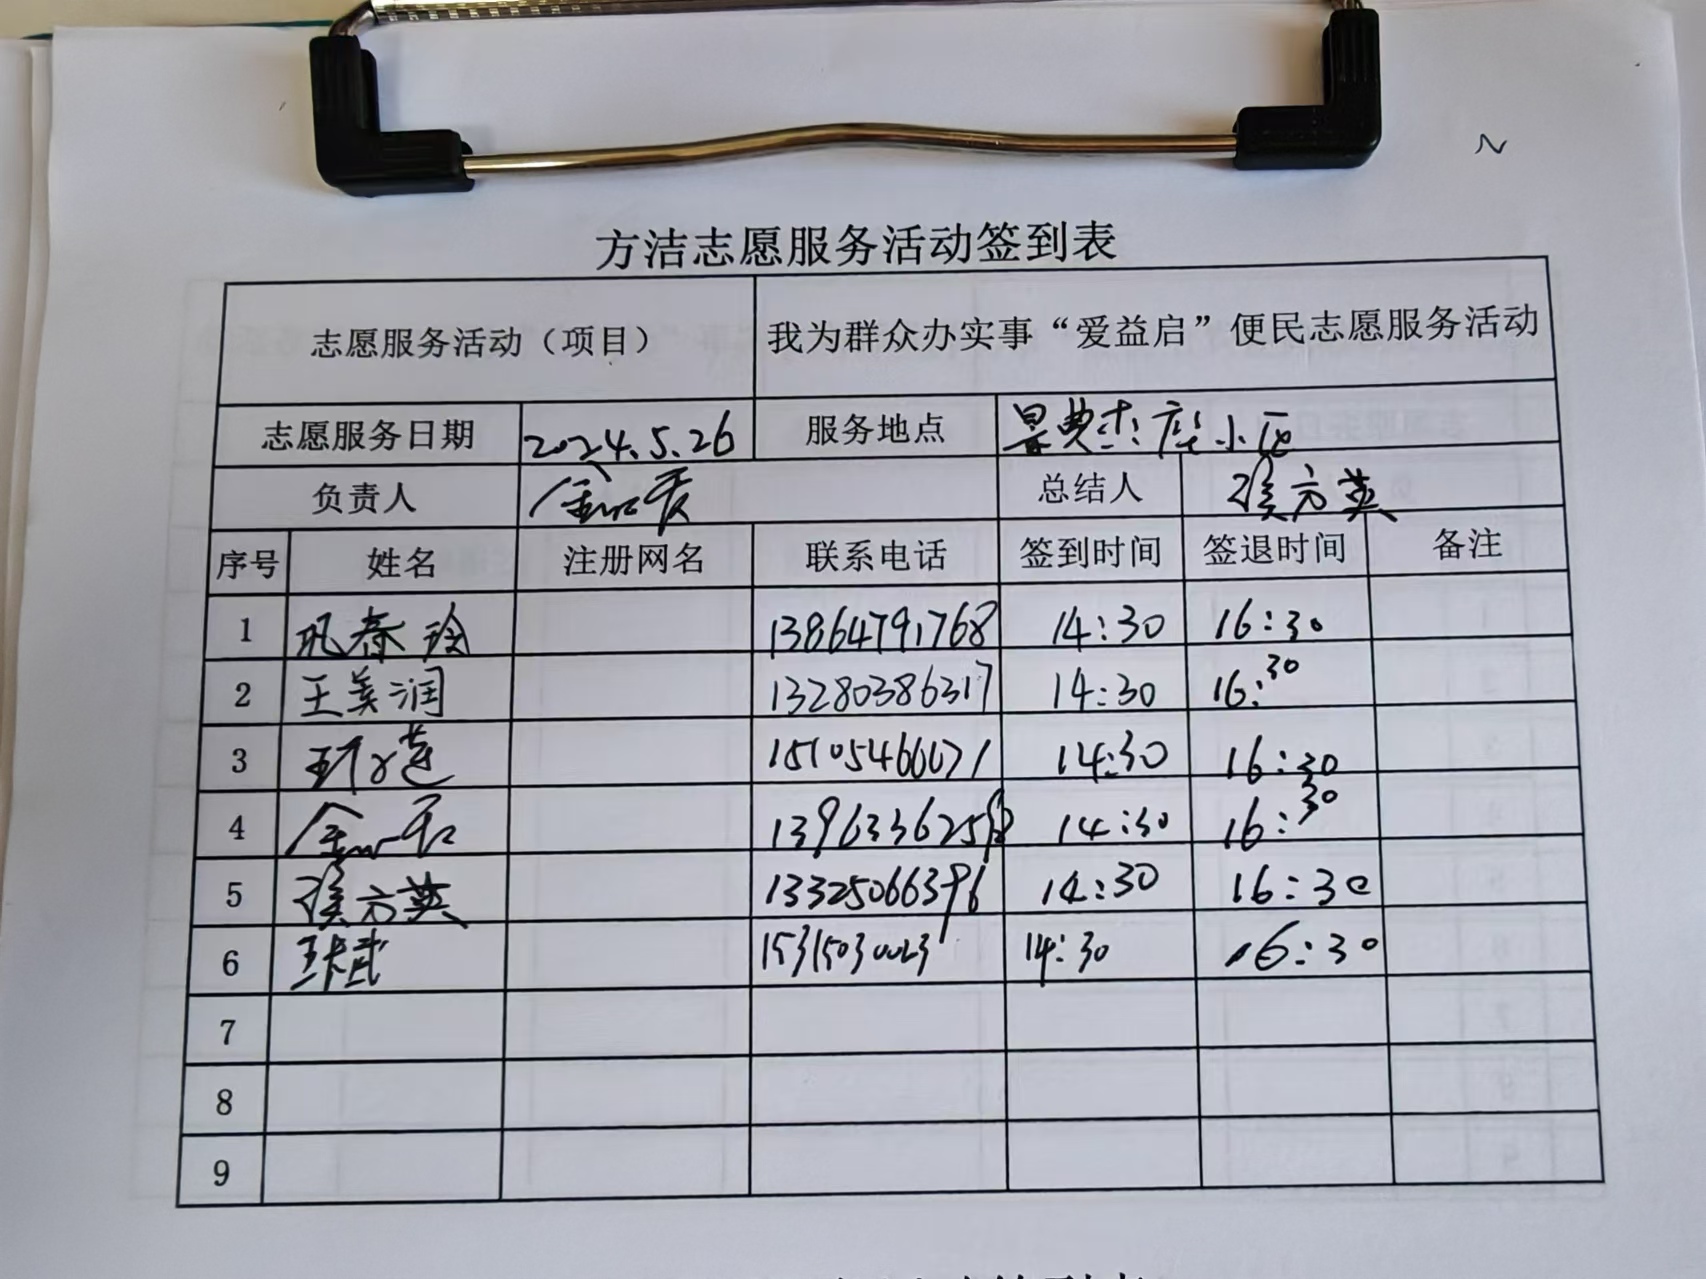 方洁志愿服务活动签到表
志愿服务活动（项目） 我为群众办实事“爱益启”便民志愿服务活动
志愿服务日期 2024.5.26 服务地点 景典杰座小区
负责人 总结人 方英
序号 姓名 注册网名 联系电话 签到时间 签退时间 备注
1 巩春玲 13864791768 14:30 16:30
2 王美润 13280386317 14:30 16:30
3 14:30 16:30
4 14:30 16:30
5 方英 13325066396 14:30 16:30
6 15315030023 14:30 16:30
7
8
9